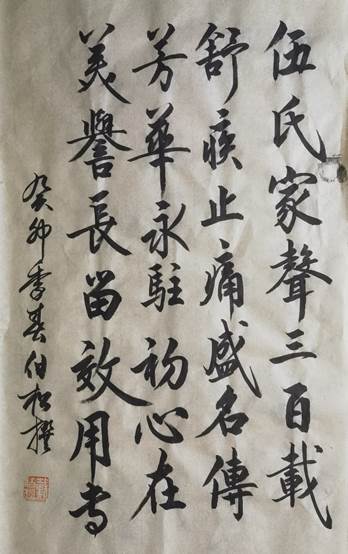 伍氏家聲三百載
舒痰止痛盛名傳
芳華永駐初心在
美譽長留效用专
癸卯季春伯松撰